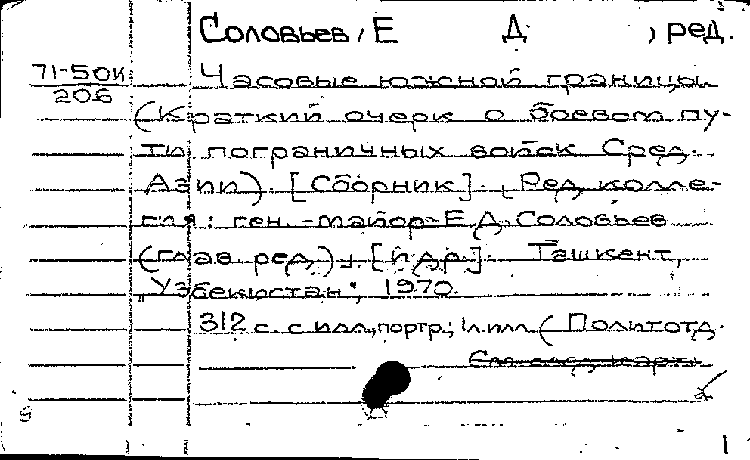 Соловьев, Е Д , ред.
71-50к Часовые южной границы
206
(Краткий очерк о боевом пу-
ти пограничных войск Сред.
Азии). [Сборник]. Ред колле-
гия: ген.-майор Е Д Соловьев
(глав ред.) [и др.]. Ташкент,
„Узбекистан", 1970.
312 с. с илл, портр.; 1 л. илл. (Политотд.
См след карт.